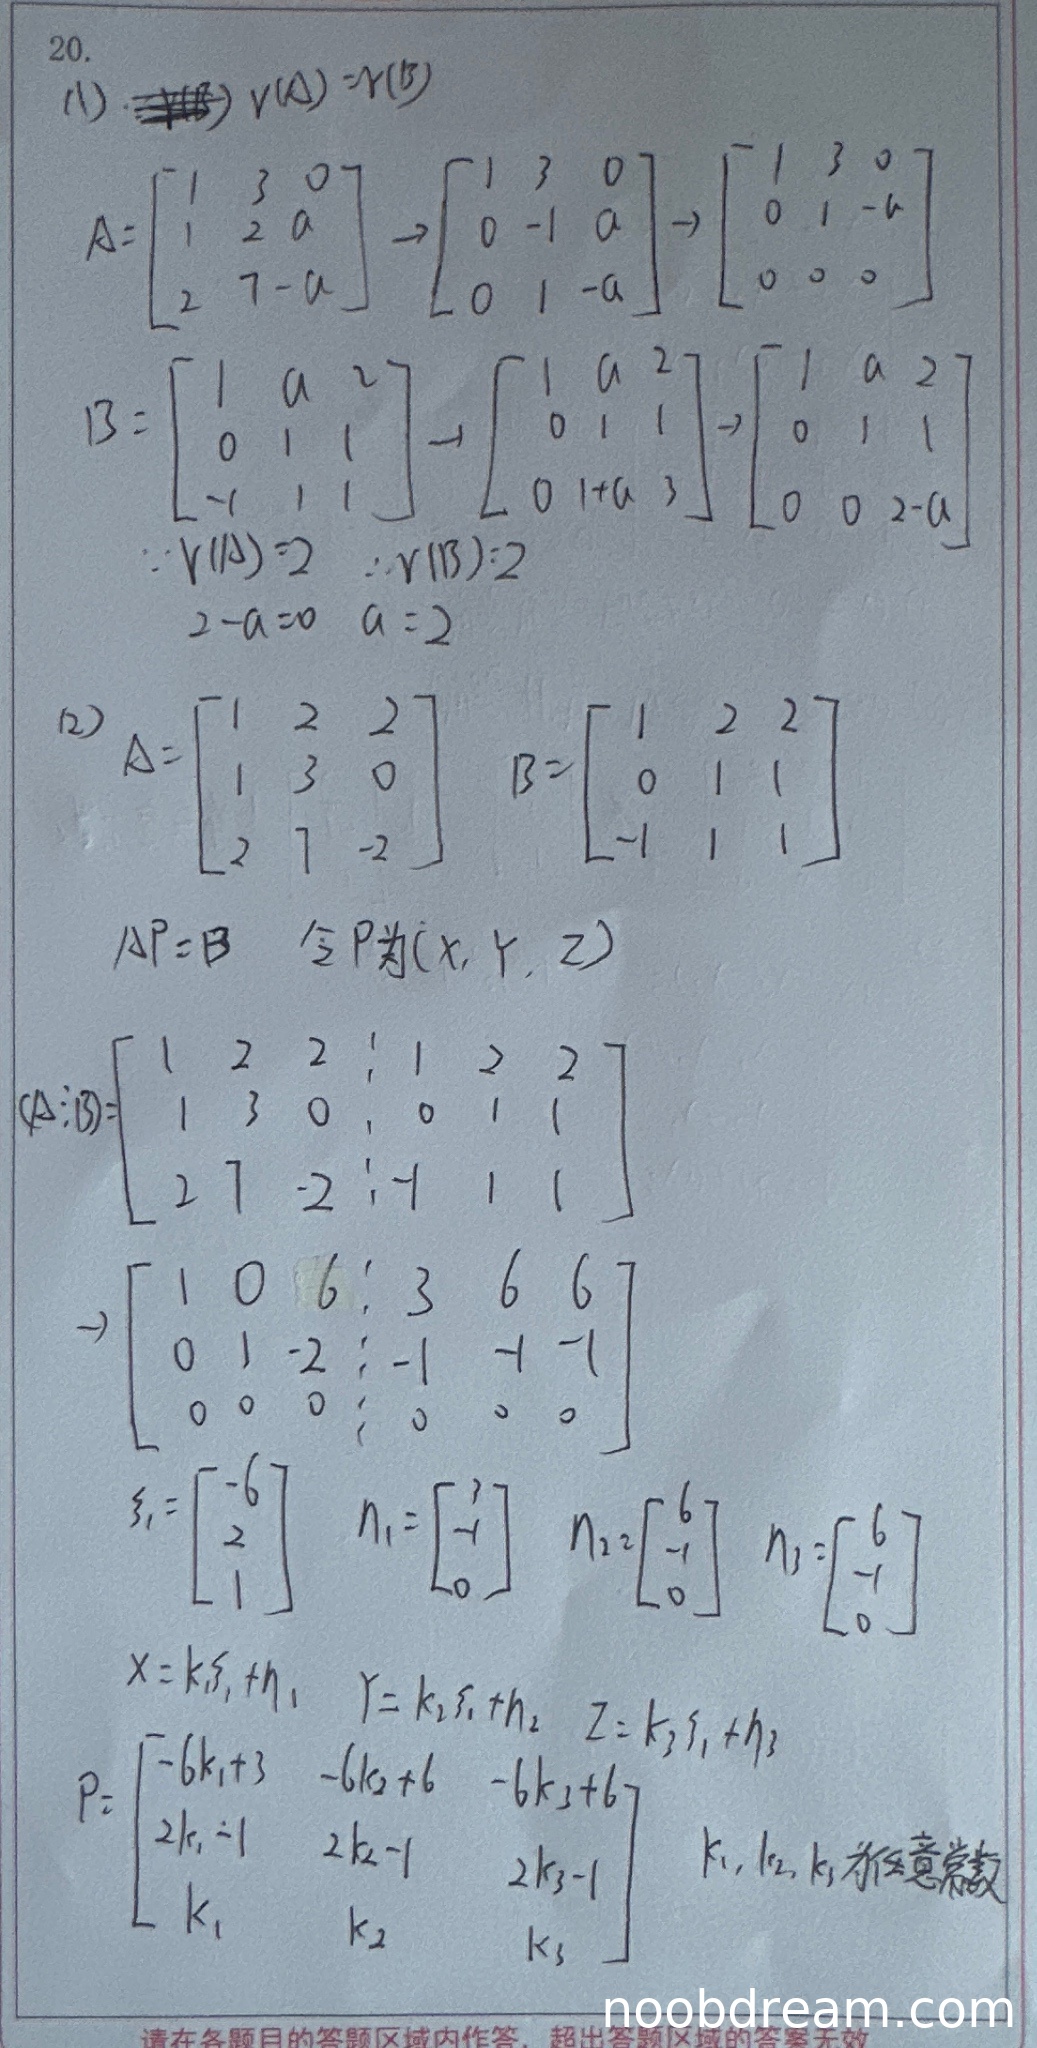 20.
(1) r(A)=r(B)
A= [1 3 0; 1 2 a; 2 7 -a] → [1 3 0; 0 -1 a; 0 1 -a] → [1 3 0; 0 1 -a; 0 0 0]
B= [1 a 2; 0 1 1; -1 1 1] → [1 a 2; 0 1 1; 0 1+a 3] → [1 a 2; 0 1 1; 0 0 2-a]
∵r(A)=2 ∴r(B)=2
2-a=0 a=2
(2) A= [1 2 2; 1 3 0; 2 7 -2] B= [1 2 2; 0 1 1; -1 1 1]
AP=B 令P为(X, Y, Z)
(A⋮B)= [1 2 2 ⋮ 1 2 2; 1 3 0 ⋮ 0 1 1; 2 7 -2 ⋮ -1 1 1]
→ [1 0 6 ⋮ 3 6 6; 0 1 -2 ⋮ -1 -1 -1; 0 0 0 ⋮ 0 0 0]
ξ₁= [-6; 2; 1] η₁= [3; -1; 0] η₂= [6; -1; 0] η₃= [6; -1; 0]
X=k₁ξ₁+η₁ Y=k₂ξ₁+η₂ Z=k₃ξ₁+η₃
P= [-6k₁+3 -6k₂+6 -6k₃+6; 2k₁-1 2k₂-1 2k₃-1; k₁ k₂ k₃] k₁, k₂, k₃为任意常数
noobdream.com
请在各题目的答题区域内作答，超出答题区域的答案无效